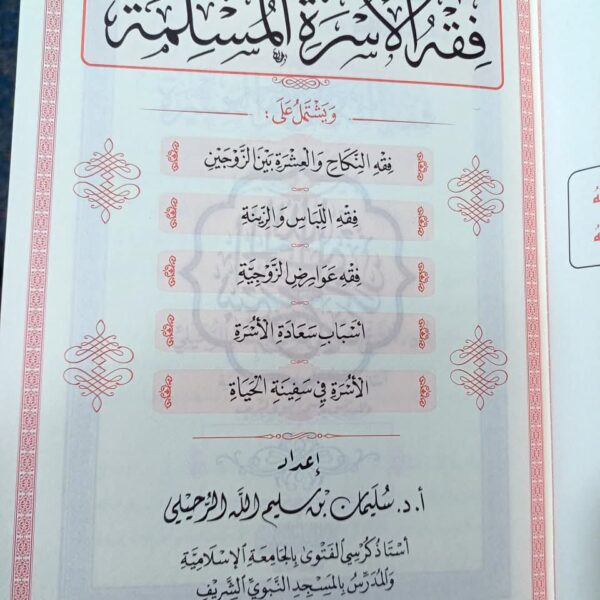 فِقْهُ الأُسْرَةِ المُسْلِمَةِ
وَيَشْتَمِلُ عَلَى :
فِقْهِ النِّكَاحِ وَالْعِشْرَةِ بَيْنَ الزَّوْجَيْنِ
فِقْهِ اللِّبَاسِ وَالزِّينَةِ
فِقْهِ عَوَارِضِ الزَّوْجِيَّةِ
أَسْبَابِ سَعَادَةِ الأُسْرَةِ
الأُسْرَةِ فِي سَفِينَةِ الحَيَاةِ
إعداد
أ. د. سُلَيْمَان بن سليم الله الرُّحَيْلي
أُسْتَاذُ كُرْسِي الفَتْوَى بِالجَامِعَةِ الإِسْلَامِيَّةِ
وَالمُدَرِّسُ بِالمَسْجِدِ النَّبَوِيِّ الشَّرِيفِ